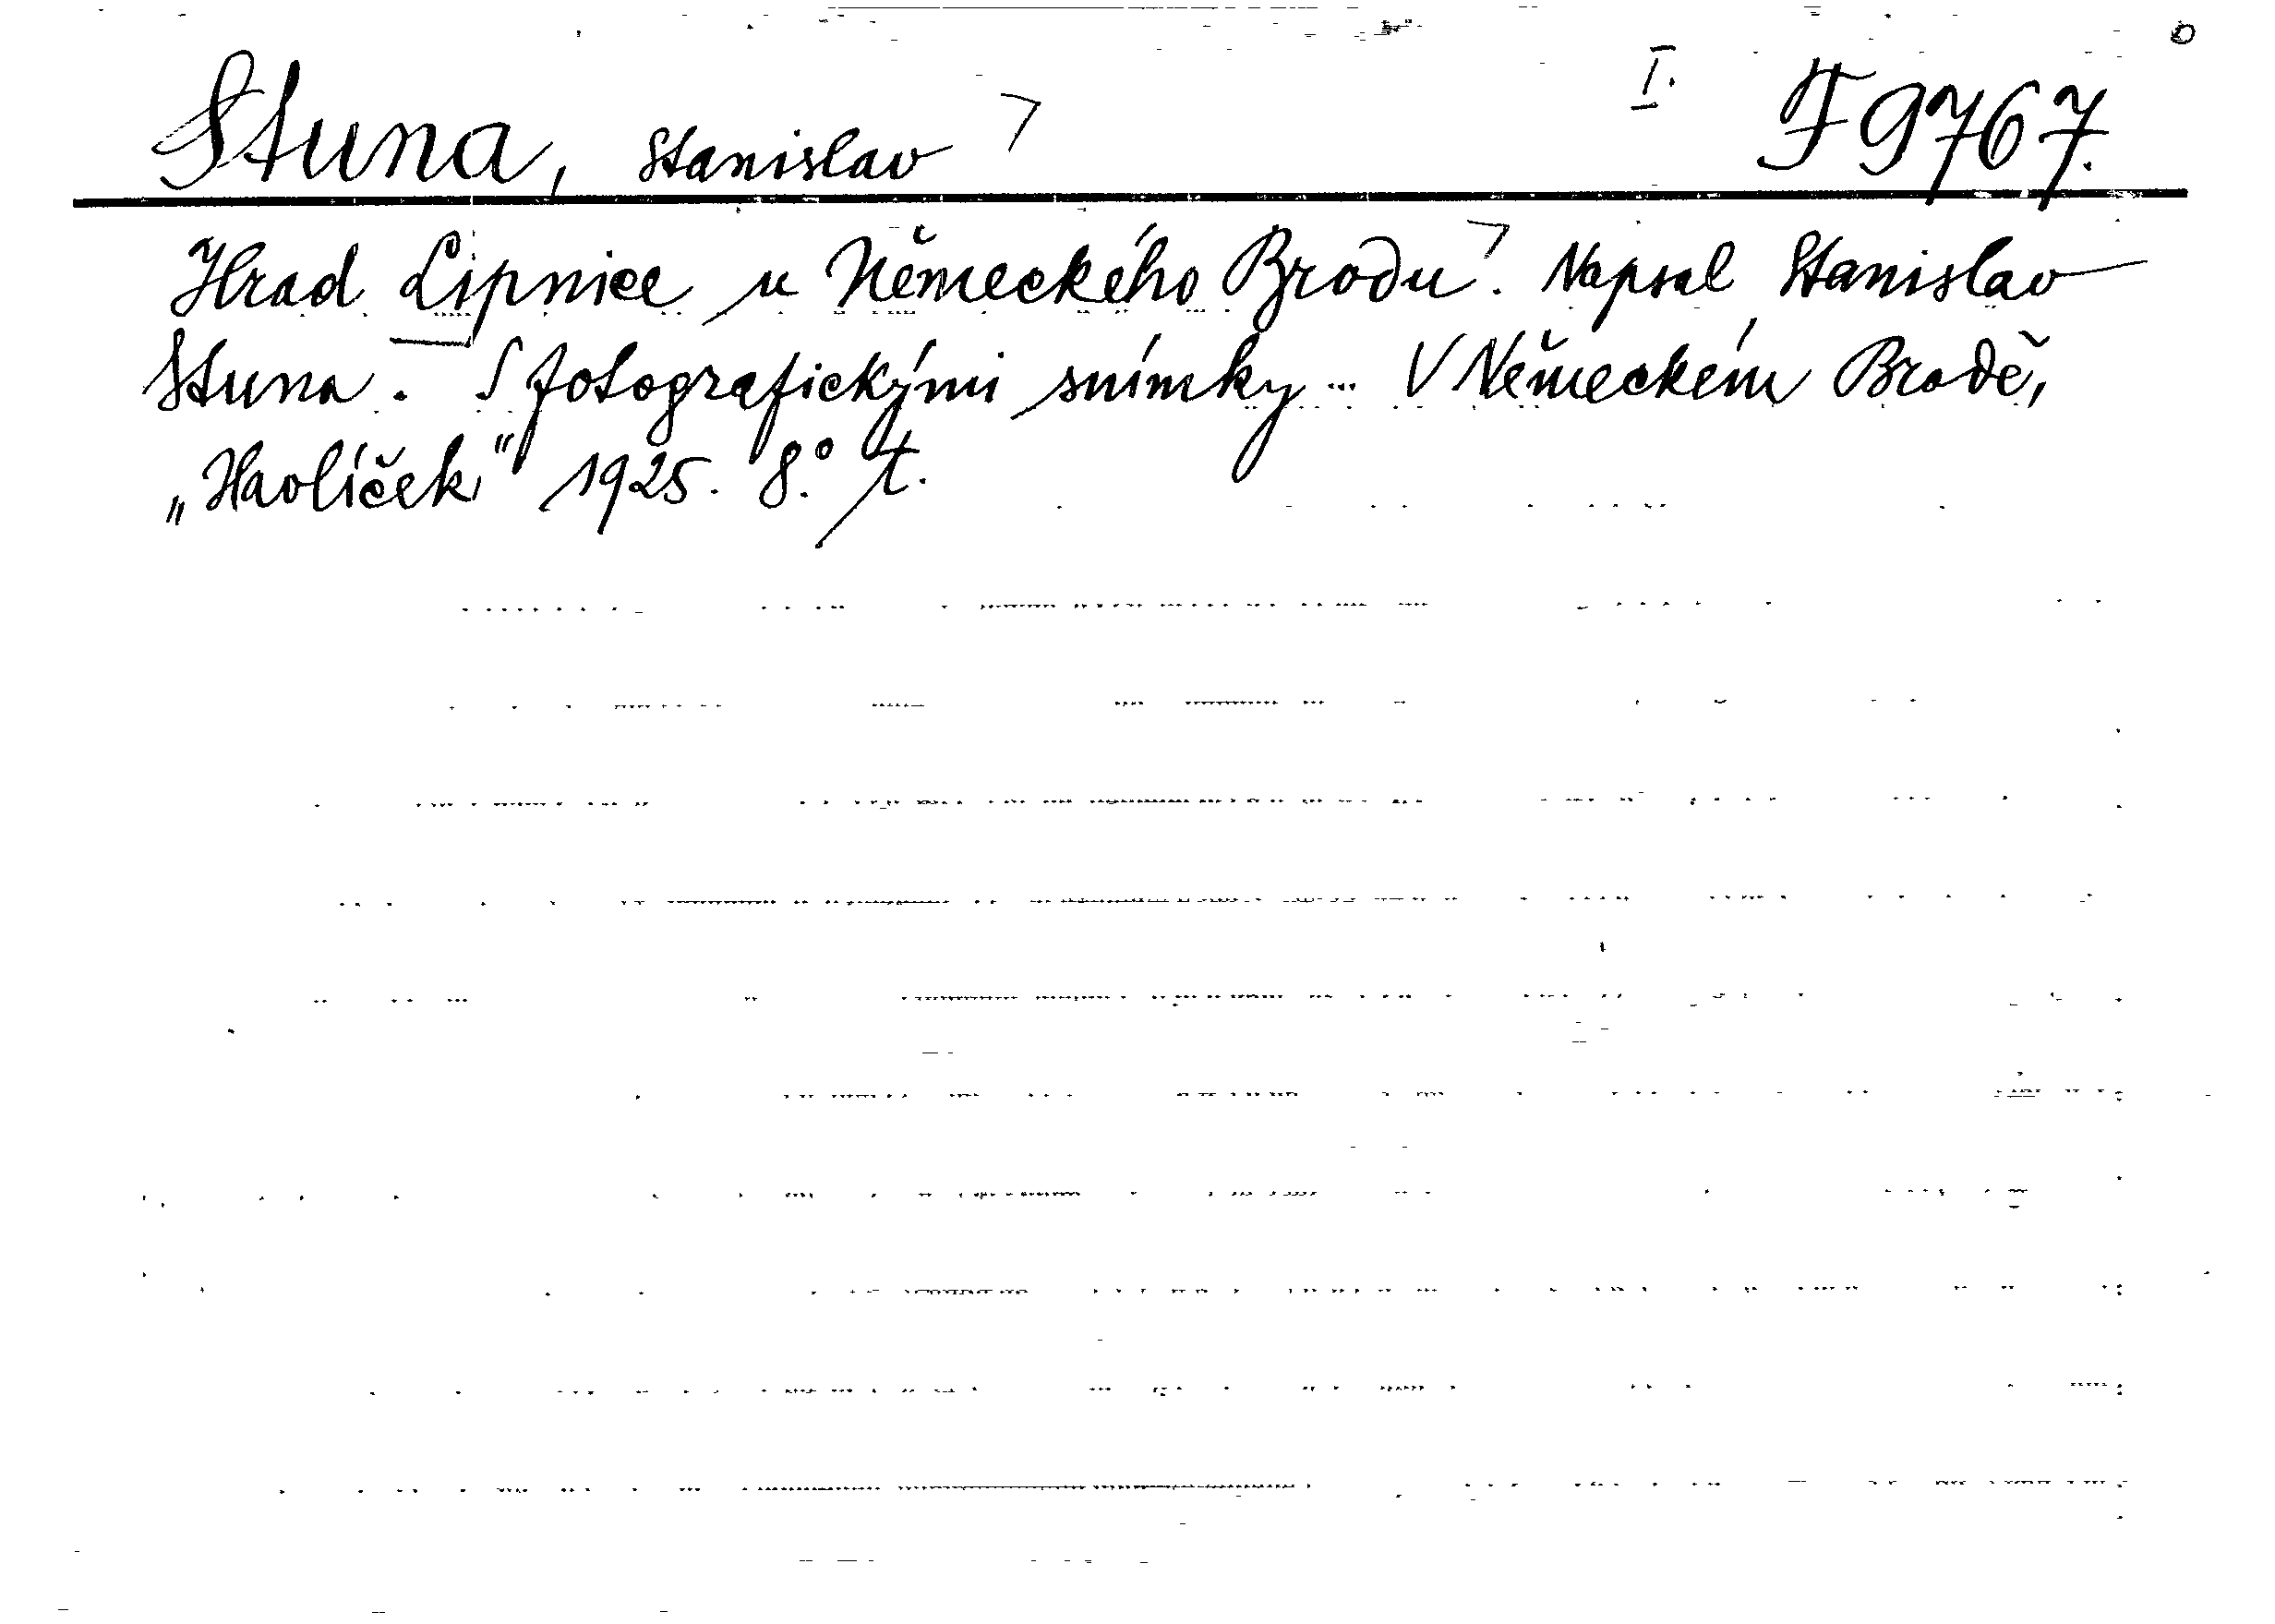 Stuna, Stanislav I. F 9767.
Hrad Lipnice u Německého Brodu. Napsal Stanislav
Stuna. S fotografickými snímky ... V Německém Brodě,
„Havlíček" 1925. 8.° t.